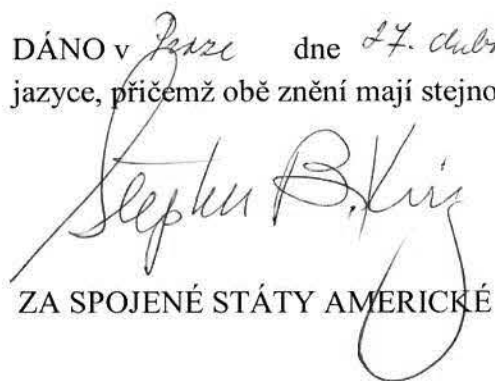 DÁNO v Praze dne 27. dubn
jazyce, přičemž obě znění mají stejno
Stephen B. King
ZA SPOJENÉ STÁTY AMERICKÉ